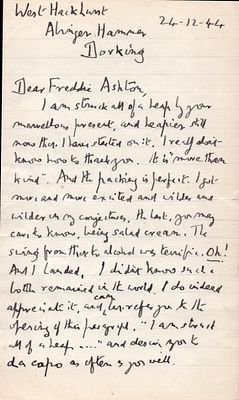 West Hackhurst
Abinger Hammer
Dorking
24-12-44
Dear Freddie Ashton,
I am struck all of a heap by your
marvellous present, and heapier still
now that I have started on it. I really don't
know how to thank you. It is "more than
kind". And the packing is perfect. I got
more and more excited and wilder and
wilder in my conjectures, the last, you may
care to know, being salad cream. The
swing from that to alcohol was terrific. Oh!
And I landed. I didn't know such a
bottle remained in the world. I do indeed
appreciate it, and can refer you to the
opening of this paragraph, "I am struck
all of a heap ....." and desire you to
da capo as often as you will.